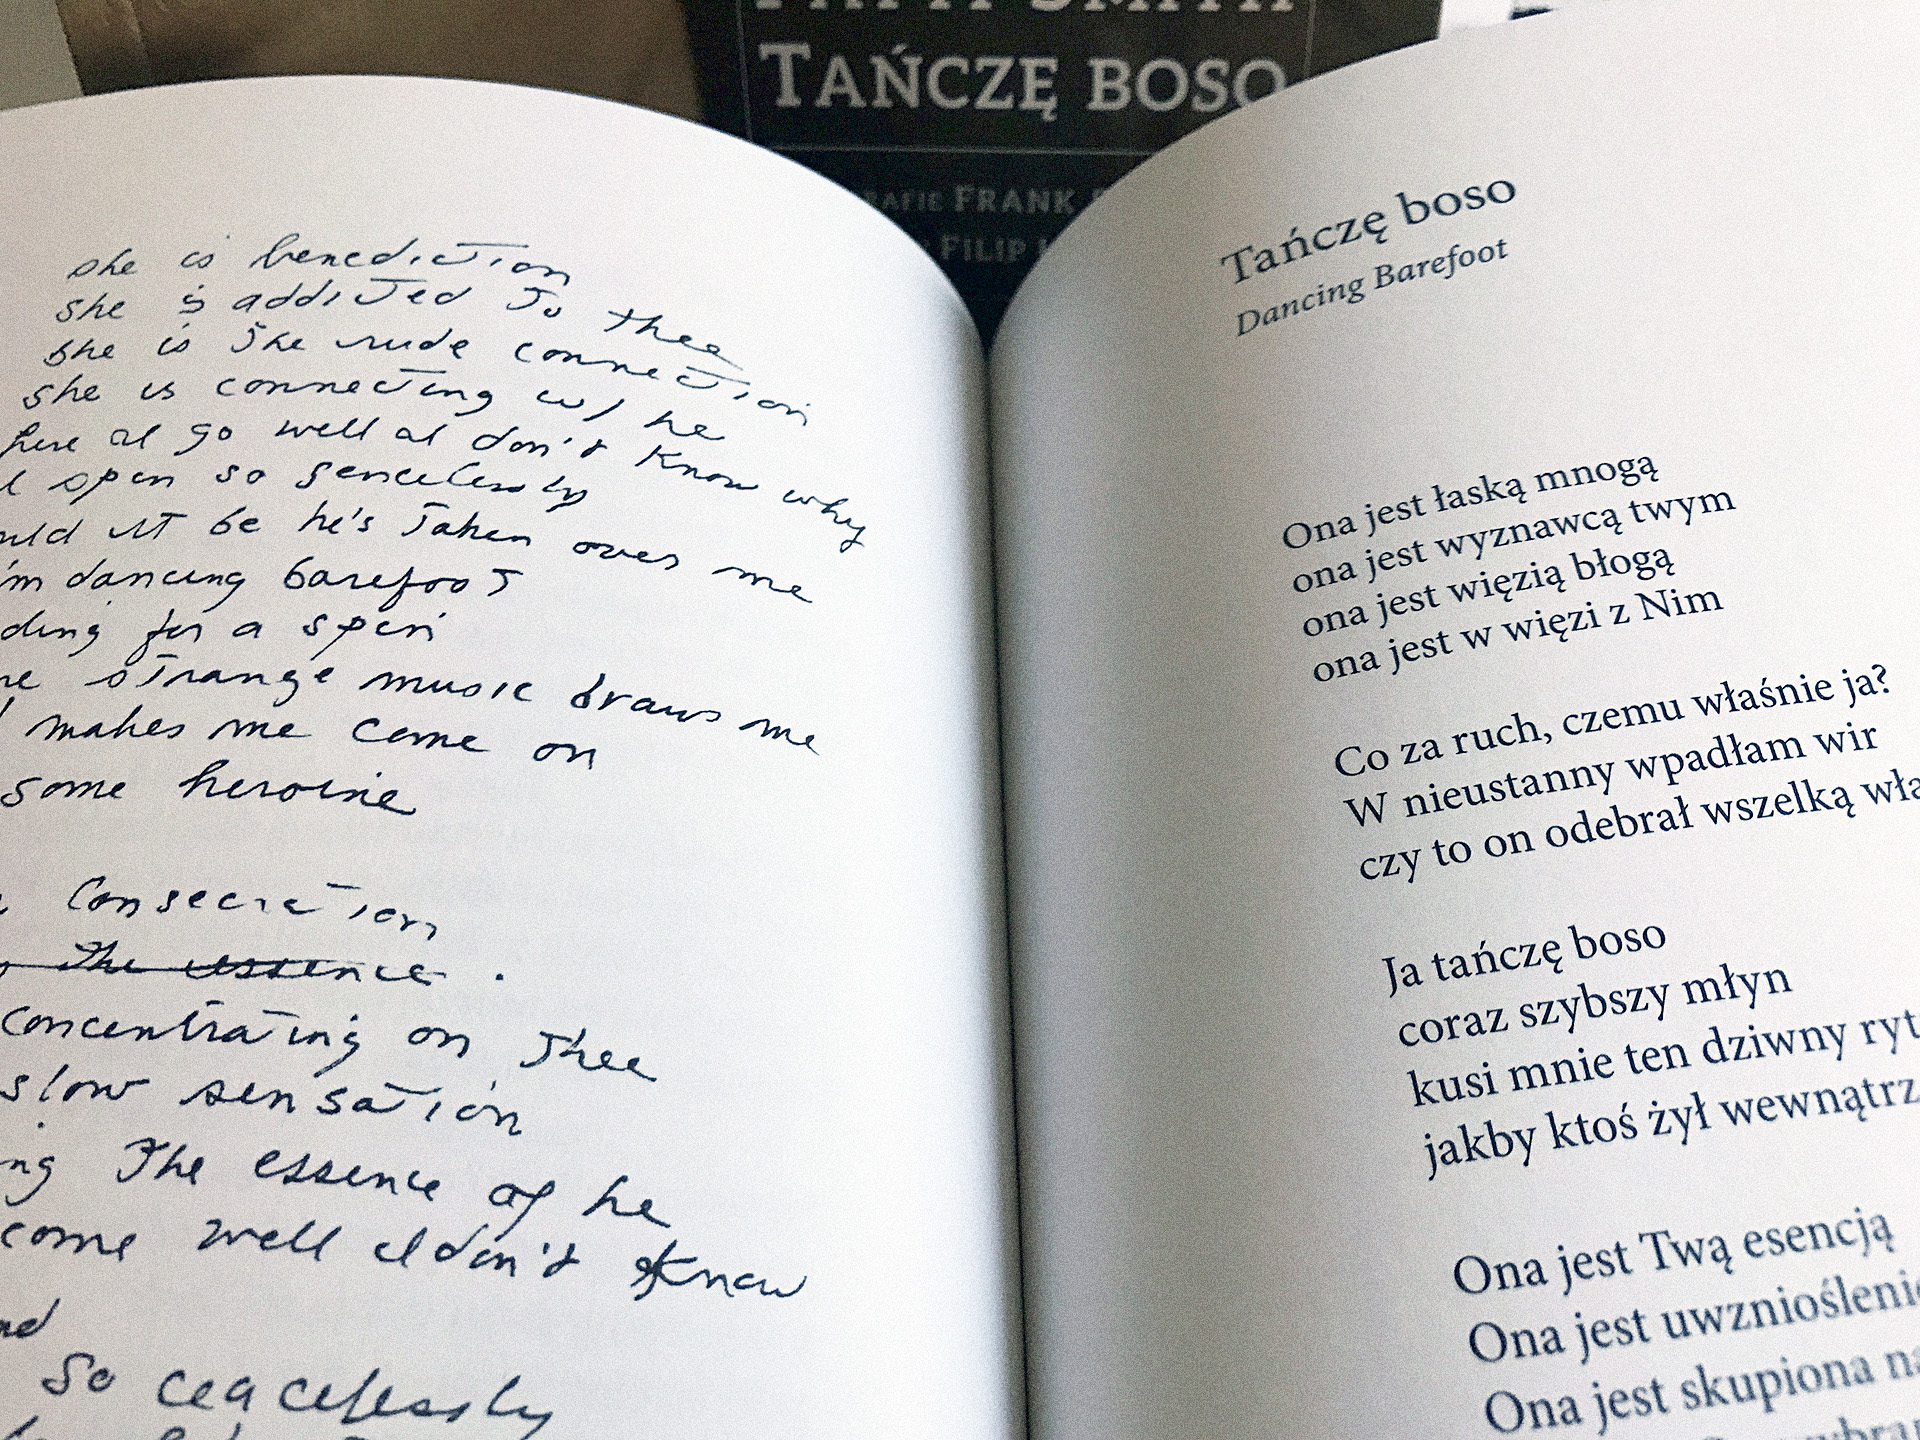 PATTI SMITH
TAŃCZĘ BOSO
FRANK
FILIP
she is benediction
she is addicted to thee
she is the rude connection
she is connecting w/ he
here I go well I don't know why
spin so sencelessly
it be he's taken over me
dancing barefoot
for a spin
strange music draws me
makes me come on
some heroine
Consecration
the essence .
concentrating on thee
slow sensation
the essence of he
come well I don't know
So ceacelessly
Tańczę boso
Dancing Barefoot
Ona jest łaską mnogą
ona jest wyznawcą twym
ona jest więzią błogą
ona jest w więzi z Nim
Co za ruch, czemu właśnie ja?
W nieustanny wpadłam wir
czy to on odebrał wszelką
Ja tańczę boso
coraz szybszy młyn
kusi mnie ten dziwny
jakby ktoś żył wewnątrz
Ona jest Twą esencją
Ona jest
Ona jest skupiona